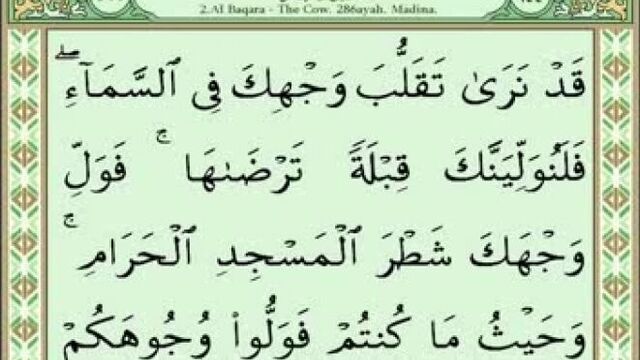 2.Al Baqara - The Cow. 286ayah. Madina.
قَدْ نَرَىٰ تَقَلُّبَ وَجْهِكَ فِى ٱلسَّمَآءِ ۖ
فَلَنُوَلِّيَنَّكَ قِبْلَةً تَرْضَىٰهَا ۚ فَوَلِّ
وَجْهَكَ شَطْرَ ٱلْمَسْجِدِ ٱلْحَرَامِ ۚ
وَحَيْثُ مَا كُنتُمْ فَوَلُّوا۟ وُجُوهَكُمْ